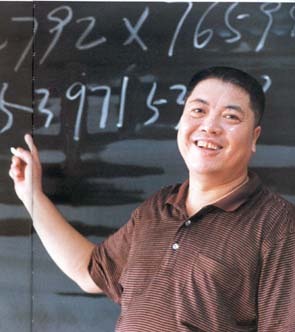 792×7659
539715